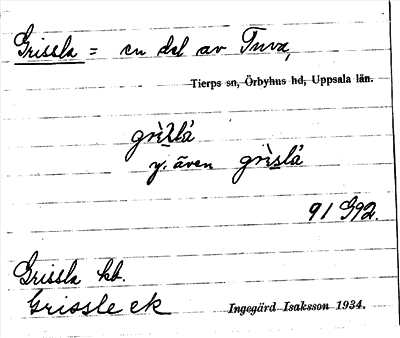 Grissla = en del av Tuva,
Tierps sn, Örbyhus hd, Uppsala län.
grìslá
y. även grìslá
91 G92.
Grissla hb.
Grissle ek
Ingegärd Isaksson 1934.